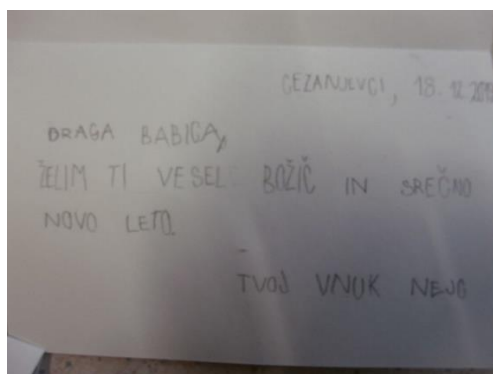 CEZANJEVCI, 18. 12. 2015
DRAGA BABICA,
ŽELIM TI VESEL BOŽIČ IN SREČNO
NOVO LETO.
TVOJ VNUK NEJC